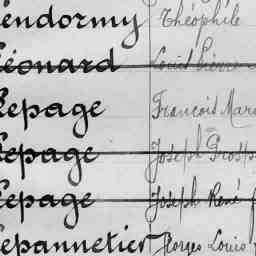 endormy Théophile
Léonard Louis Pierre
Lepage François Mari
Lepage Joseph Prosp
Lepage Joseph René
epannetier Georges Louis